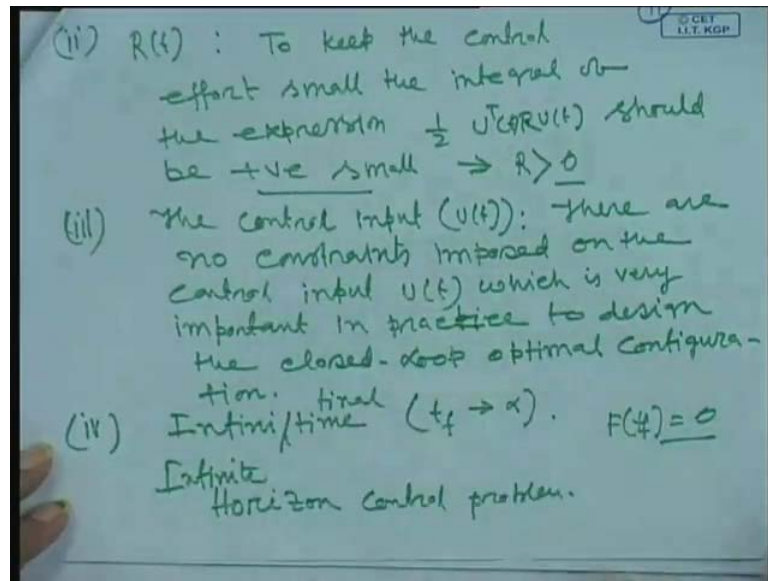 © CET
I.I.T. KGP
(ii) R(t) : To keep the control
effort small the integral of
the expression 1/2 Uᵀ(t)RU(t) should
be +ve small → R>0
(iii) The control input (U(t)): There are
no constraints imposed on the
control input U(t) which is very
important in practice to design
the closed-loop optimal configura-
tion.
(iv) Infini/time final (t_f → α). F(t_f) = 0
Infinite
Horizon control problem.